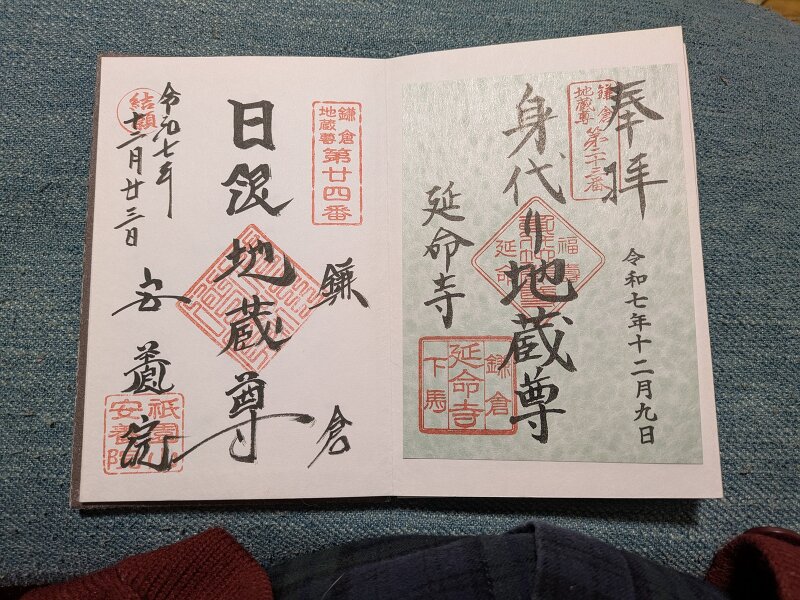 奉拝
令和七年十二月九日
鎌倉
地蔵尊
第二十三番
身代り地蔵尊
福寿
延命
延命寺
鎌倉
延命寺
下馬
鎌倉
地蔵尊
第廿四番
鎌倉
日限地蔵尊
結願
令和七年
十二月廿三日
安養院
祇園山
安養院